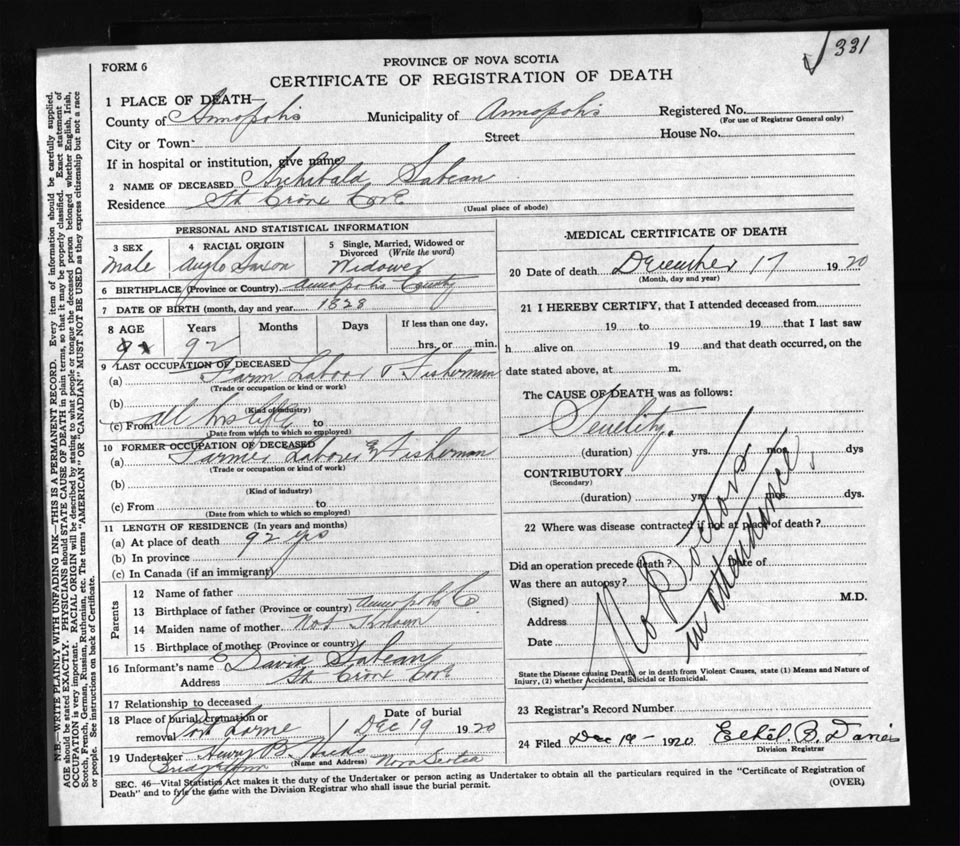 331
FORM 6
PROVINCE OF NOVA SCOTIA
CERTIFICATE OF REGISTRATION OF DEATH
1 PLACE OF DEATH—
County of Annopolis Municipality of Annopolis Registered No.
(For use of Registrar General only)
City or Town Street House No.
If in hospital or institution, give name
2 NAME OF DECEASED Archibald Sabean
Residence St Croix Cove
(Usual place of abode)
PERSONAL AND STATISTICAL INFORMATION
3 SEX 4 RACIAL ORIGIN 5 Single, Married, Widowed or Divorced (Write the word)
Male Anglo Saxon Widower
6 BIRTHPLACE (Province or Country) Annopolis County
7 DATE OF BIRTH (month, day and year) 1828
8 AGE Years Months Days If less than one day,
92 hrs. or min.
9 LAST OCCUPATION OF DECEASED
(a) Farm Labour & Fisherman
(Trade or occupation or kind or work)
(b)
(Kind of industry)
(c) From all his life to
(Date from which to which so employed)
10 FORMER OCCUPATION OF DECEASED
(a) Farmer Laborer & Fisherman
(Trade or occupation or kind of work)
(b)
(Kind of industry)
(c) From to
(Date from which to which so employed)
11 LENGTH OF RESIDENCE (In years and months)
(a) At place of death 92 yrs
(b) In province
(c) In Canada (if an immigrant)
Parents
12 Name of father
13 Birthplace of father (Province or country) Annopolis Co.
14 Maiden name of mother Not Known
15 Birthplace of mother (Province or country)
16 Informant's name David Sabean
Address St Croix Cove
17 Relationship to deceased
18 Place of burial, cremation or removal Port Lorne Date of burial Dec 19 1920
19 Undertaker Henry B. Hicks
(Name and Address)
Bridgetown Nova Scotia
MEDICAL CERTIFICATE OF DEATH
20 Date of death December 17 1920
(Month, day and year)
21 I HEREBY CERTIFY, that I attended deceased from
19 to 19 that I last saw
h alive on 19 and that death occurred, on the
date stated above, at m.
The CAUSE OF DEATH was as follows:
Senility.
(duration) yrs. mos. dys
CONTRIBUTORY
(Secondary)
(duration) yrs. mos. dys.
22 Where was disease contracted if not at place of death?
Did an operation precede death? Date of
Was there an autopsy?
(Signed) M.D.
Address
Date
No Doctors
in attendance.
State the Disease causing Death, or in death from Violent Causes, state (1) Means and Nature of
Injury, (2) whether Accidental, Suicidal or Homicidal.
23 Registrar's Record Number
24 Filed Dec 19 - 1920 Ethel B. Davies
Division Registrar
SEC. 46—Vital Statistics Act makes it the duty of the Undertaker or person acting as Undertaker to obtain all the particulars required in the "Certificate of Registration of
Death" and to fyle the same with the Division Registrar who shall issue the burial permit. (OVER)
N.B.—WRITE PLAINLY WITH UNFADING INK—THIS IS A PERMANENT RECORD. Every item of information should be carefully supplied.
AGE should be stated EXACTLY. PHYSICIANS should STATE CAUSE OF DEATH in plain terms, so that it may be properly classified. Exact statement of
OCCUPATION is very important. RACIAL ORIGIN will be described by stating to what people or tongue the deceased person belonged whether English, Irish,
Scotch, French, German, Russian, Ruthenian, etc. The terms "AMERICAN" OR "CANADIAN" MUST NOT BE USED as they express citizenship but not a race
or people. See instructions on back of Certificate.